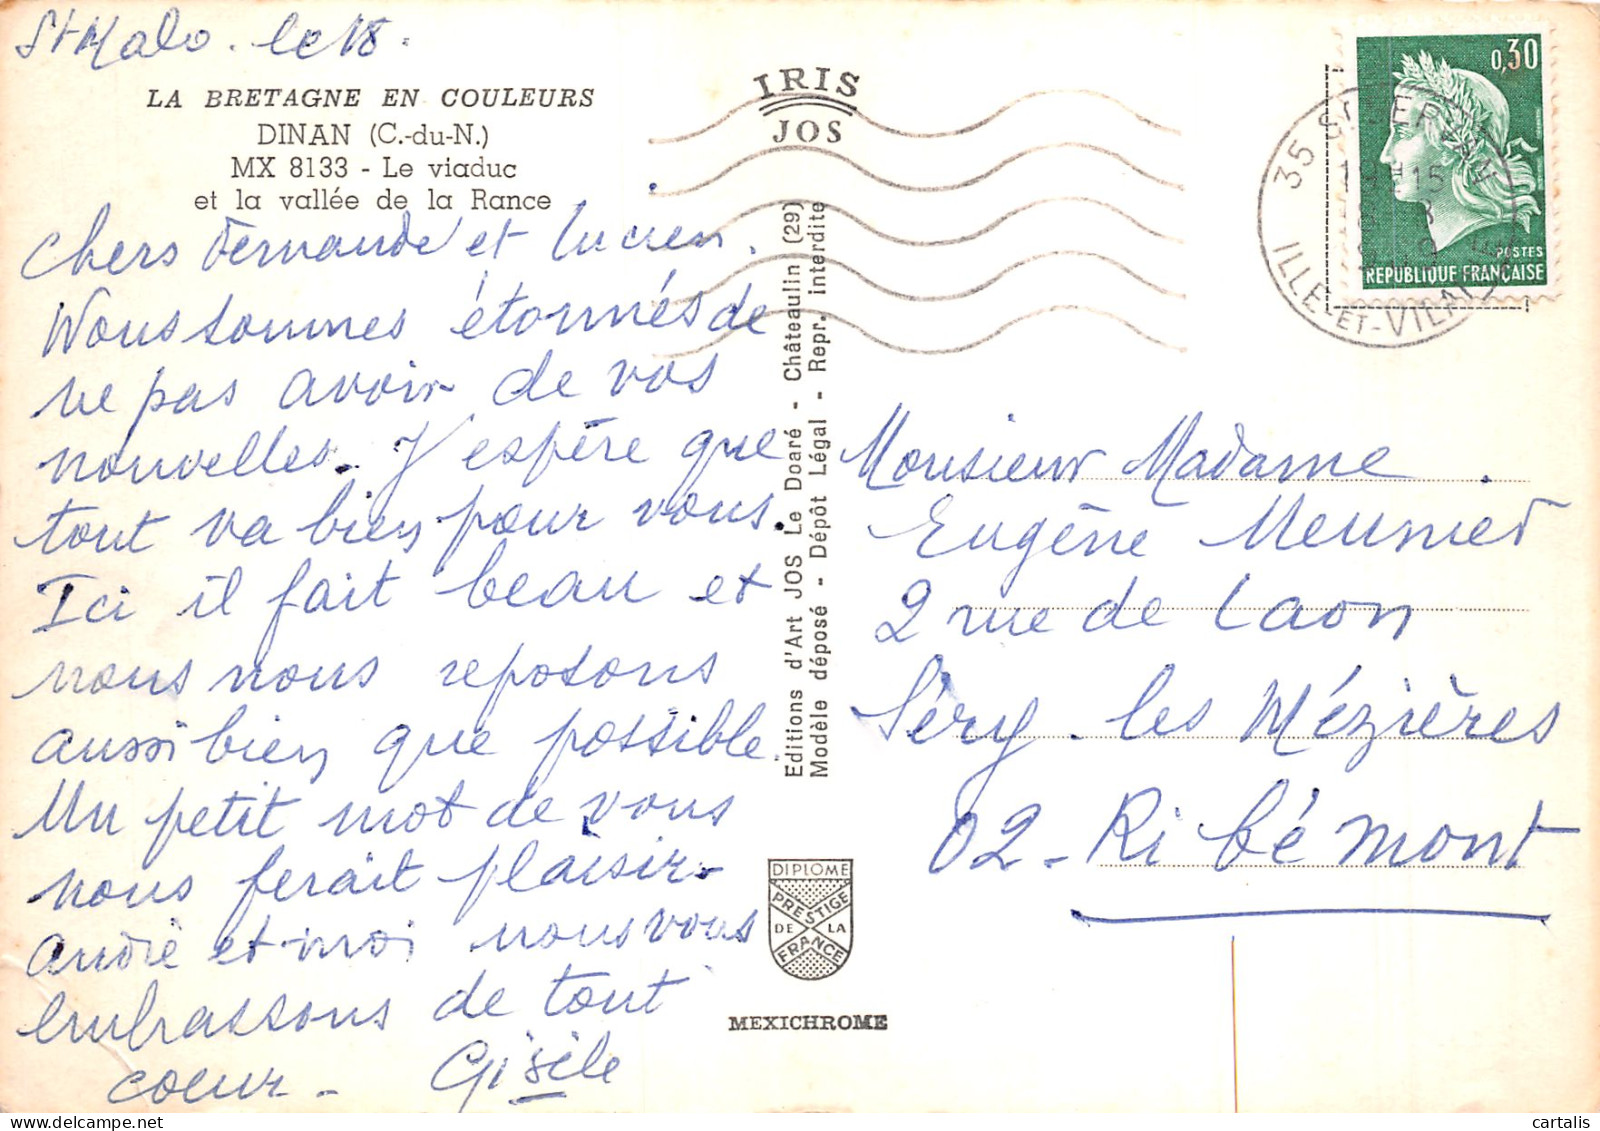 St Malo. le 18.
LA BRETAGNE EN COULEURS
DINAN (C.-du-N.)
MX 8133 - Le viaduc
et la vallée de la Rance
Chers Fernande et Lucien.
Nous sommes étonnés de
ne pas avoir de vos
nouvelles. J'espère que
tout va bien pour vous.
Ici il fait beau et
nous nous reposons
aussi bien que possible.
Un petit mot de vous
nous ferait plaisir.
André et moi nous vous
embrassons de tout
coeur - Gisèle
IRIS
JOS
Editions d'Art JOS Le Doaré - Châteaulin (29)
Modèle déposé - Dépôt Légal - Repr. interdite
DIPLOME
PRESTIGE
DE LA
FRANCE
MEXICHROME
0,30
POSTES
REPUBLIQUE FRANÇAISE
35 ST SERVAN
19H15
ILLE-ET-VILAINE
Monsieur Madame
Eugène Meunier
2 rue de Laon
Séry-les Mézières
02 - Ribémont
cartalis